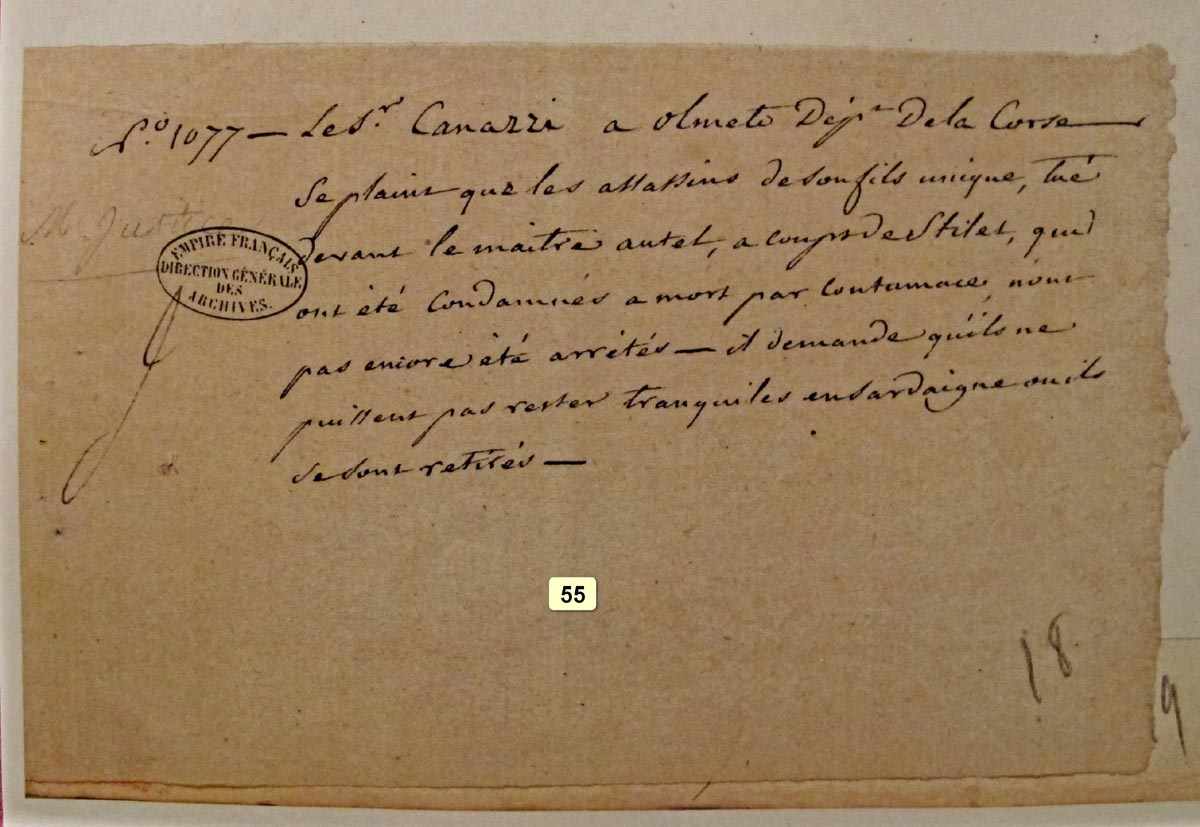 N.º 1077 — Le S.r Canazzi a olmeto Dép.t De la Corse —
Se plaint que les assassins de son fils unique, tué
devant le maitre autel, a coups de Stilet, qui
ont été Condamnés a mort par Contumace, n'ont
pas encore été arrétés — il demande qu'ils ne
puissent pas rester tranquiles en Sardaigne ou ils
se sont retirés —
M. Justice
EMPIRE FRANÇAIS
DIRECTION GÉNÉRALE
DES
ARCHIVES.
55
18
9